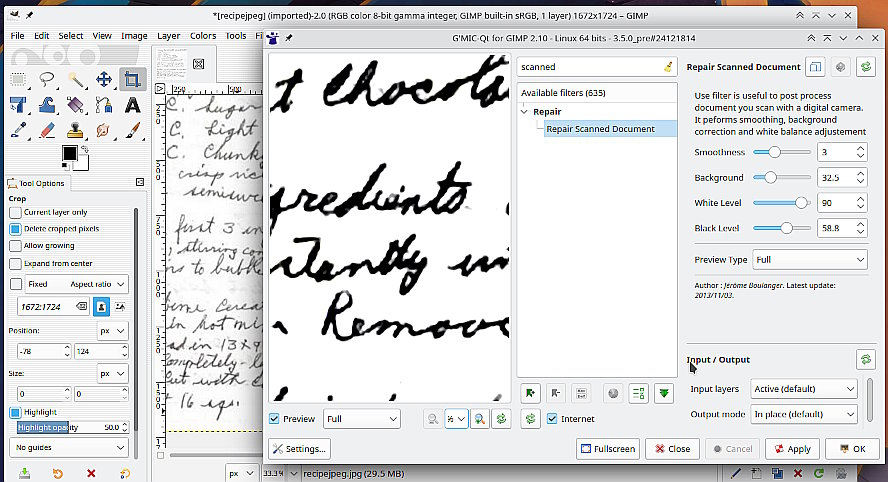 *[recipejpeg] (imported)-2.0 (RGB color 8-bit gamma integer, GIMP built-in sRGB, 1 layer) 1672x1724 – GIMP
File Edit Select View Image Layer Colors Tools
G'MIC-Qt for GIMP 2.10 - Linux 64 bits - 3.5.0_pre#24121814
Tool Options
Crop
Current layer only
Delete cropped pixels
Allow growing
Expand from center
Fixed Aspect ratio
1672:1724
Position: px
-78 124
Size: px
0 0
Highlight
Highlight opacity 50.0
No guides
250
C. Sugar
C. Light
C. Chunk
crisp ric
semiswe
first 3 in
stirring con
to bubble
Cerea
in hot mi
ad in 13x9
ompletely-l
ut with
16 sqs.
px 33.3 recipejpeg.jpg (29.5 MB)
t Chocola
gredients
stantly un
Remove
Preview Full
Settings...
scanned
Available filters (635)
Repair
Repair Scanned Document
Internet
Repair Scanned Document
Use filter is useful to post process
document you scan with a digital camera.
It peforms smoothing, background
correction and white balance adjustement
Smoothness 3
Background 32.5
White Level 90
Black Level 58.8
Preview Type Full
Author : Jérôme Boulanger. Latest update:
2013/11/03.
Input / Output
Input layers Active (default)
Output mode In place (default)
Fullscreen Close Cancel Apply OK